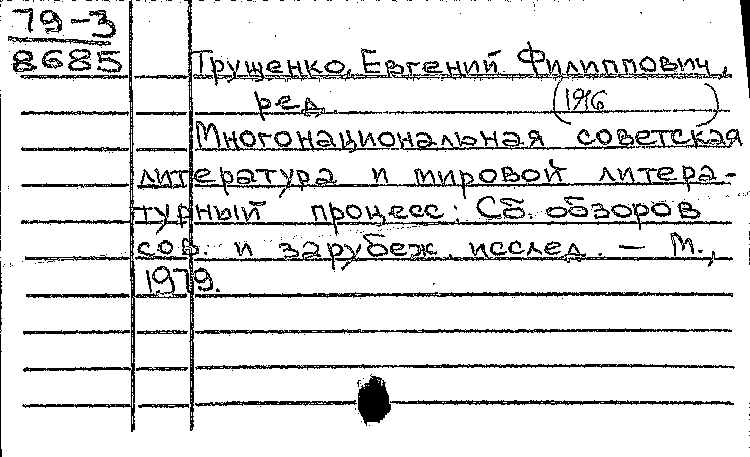 79-3
8685
Трущенко, Евгений Филиппович,
ред. (1916 )
Многонациональная советская
литература и мировой литера-
турный процесс: Сб. обзоров
сов. и зарубеж. исслед. — М.,
1979.